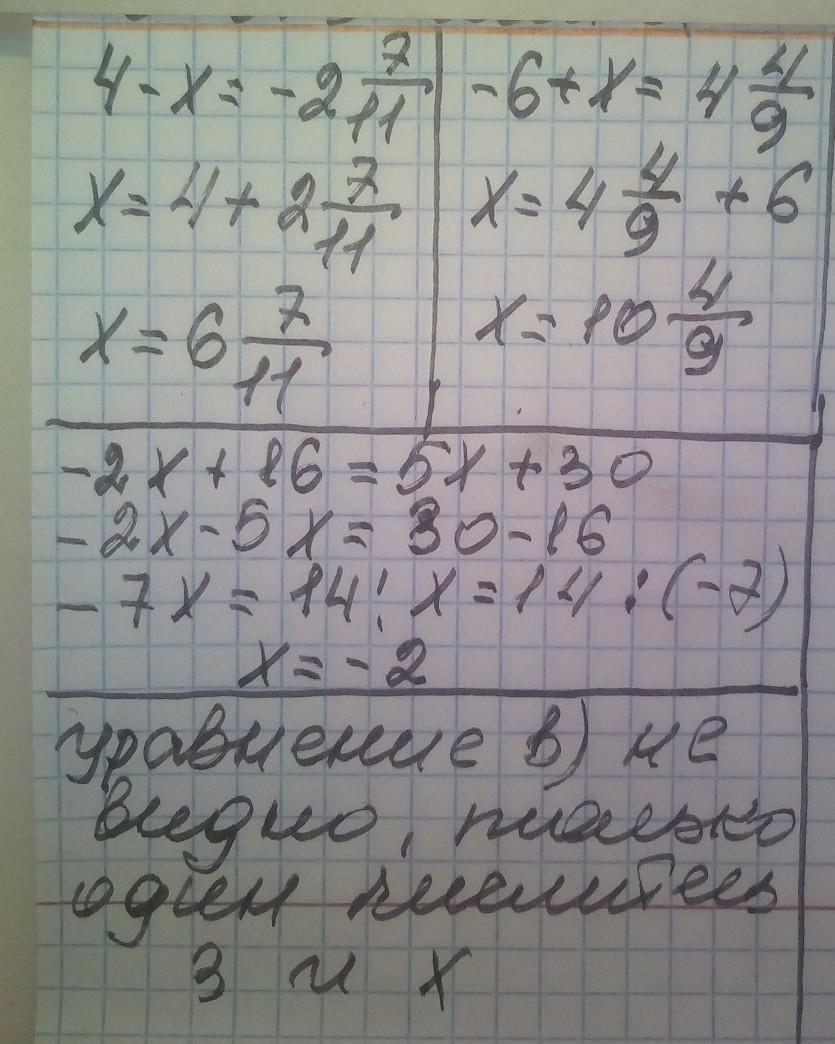 4 - x = -2 7/11
x = 4 + 2 7/11
x = 6 7/11
-6 + x = 4 4/9
x = 4 4/9 + 6
x = 10 4/9
-2x + 16 = 5x + 30
-2x - 5x = 30 - 16
-7x = 14; x = 14 : (-7)
x = -2
уравнение в) не
видно, только
один числитель
3 и x